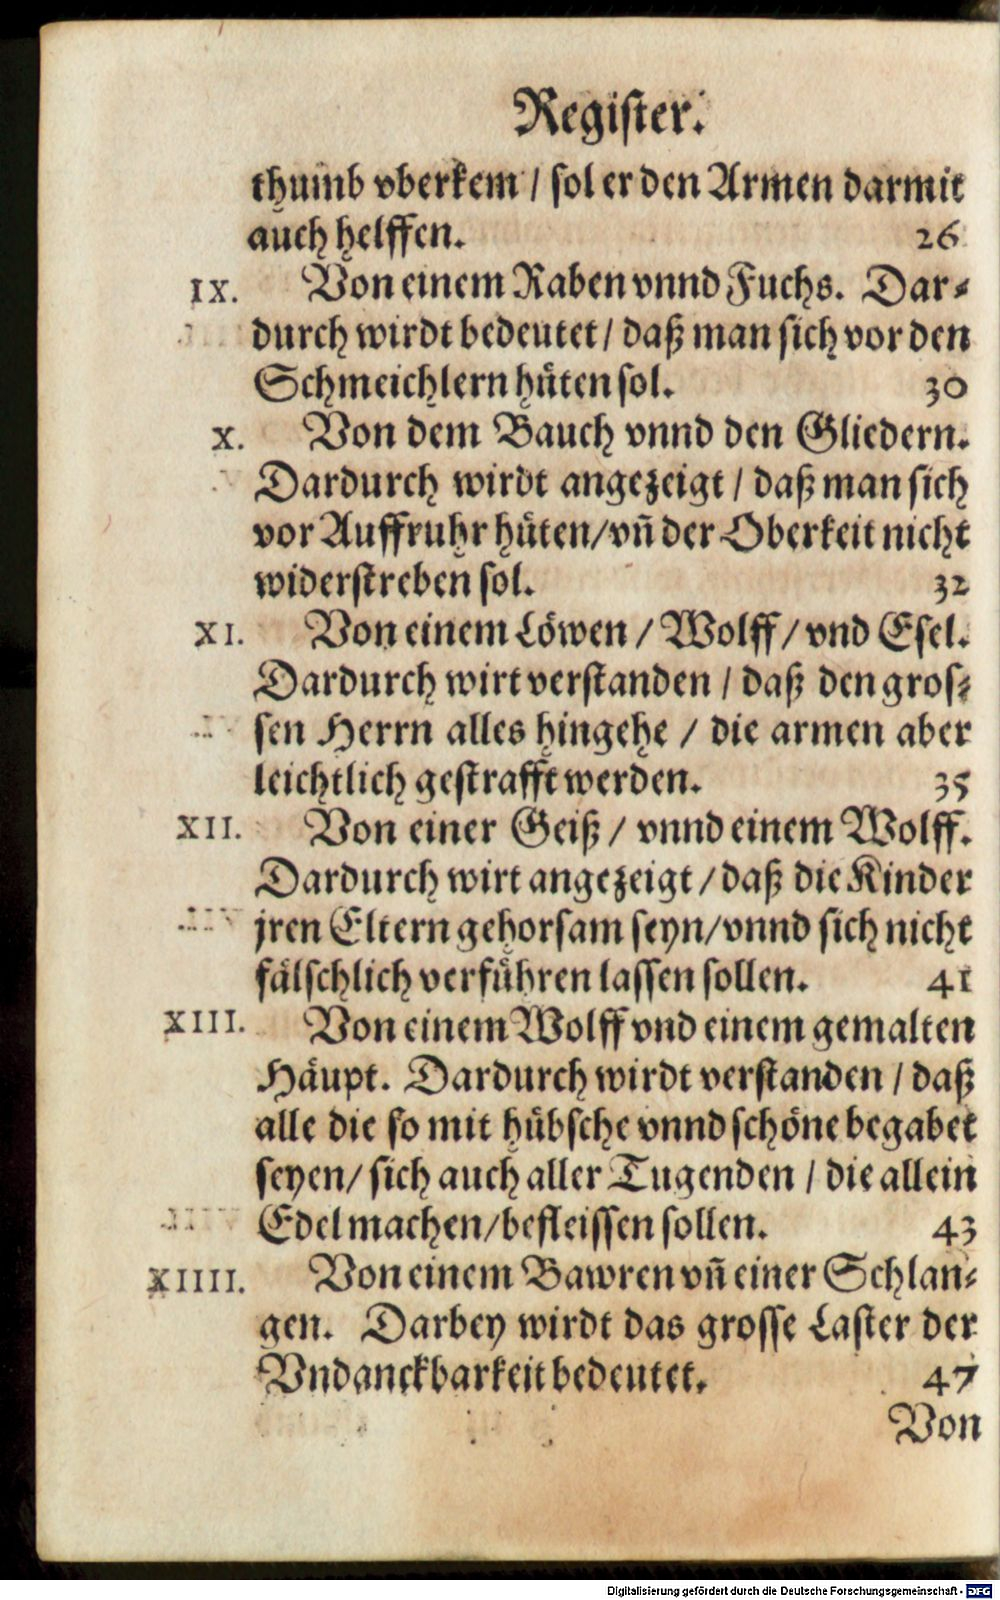 Register.
thumb vberkem / sol er den Armen darmit
auch helffen. 26
IX. Von einem Raben vnnd Fuchs. Dar-
durch wirdt bedeutet / daß man sich vor den
Schmeichlern hüten sol. 30
X. Von dem Bauch vnnd den Gliedern.
Dardurch wirdt angezeigt / daß man sich
vor Auffruhr hüten / vñ der Oberkeit nicht
widerstreben sol. 32
XI. Von einem Löwen / Wolff / vnd Esel.
Dardurch wirt verstanden / daß den gros-
sen Herrn alles hingehe / die armen aber
leichtlich gestrafft werden. 35
XII. Von einer Geiß / vnnd einem Wolff.
Dardurch wirt angezeigt / daß die Kinder
jren Eltern gehorsam seyn / vnnd sich nicht
fälschlich verführen lassen sollen. 41
XIII. Von einem Wolff vnd einem gemalten
Häupt. Dardurch wirdt verstanden / daß
alle die so mit hübsche vnnd schöne begabet
seyen / sich auch aller Tugenden / die allein
Edel machen / befleissen sollen. 43
XIIII. Von einem Bawren vñ einer Schlan-
gen. Darbey wirdt das grosse Laster der
Vndanckbarkeit bedeutet. 47
Von
Digitalisierung gefördert durch die Deutsche Forschungsgemeinschaft - DFG